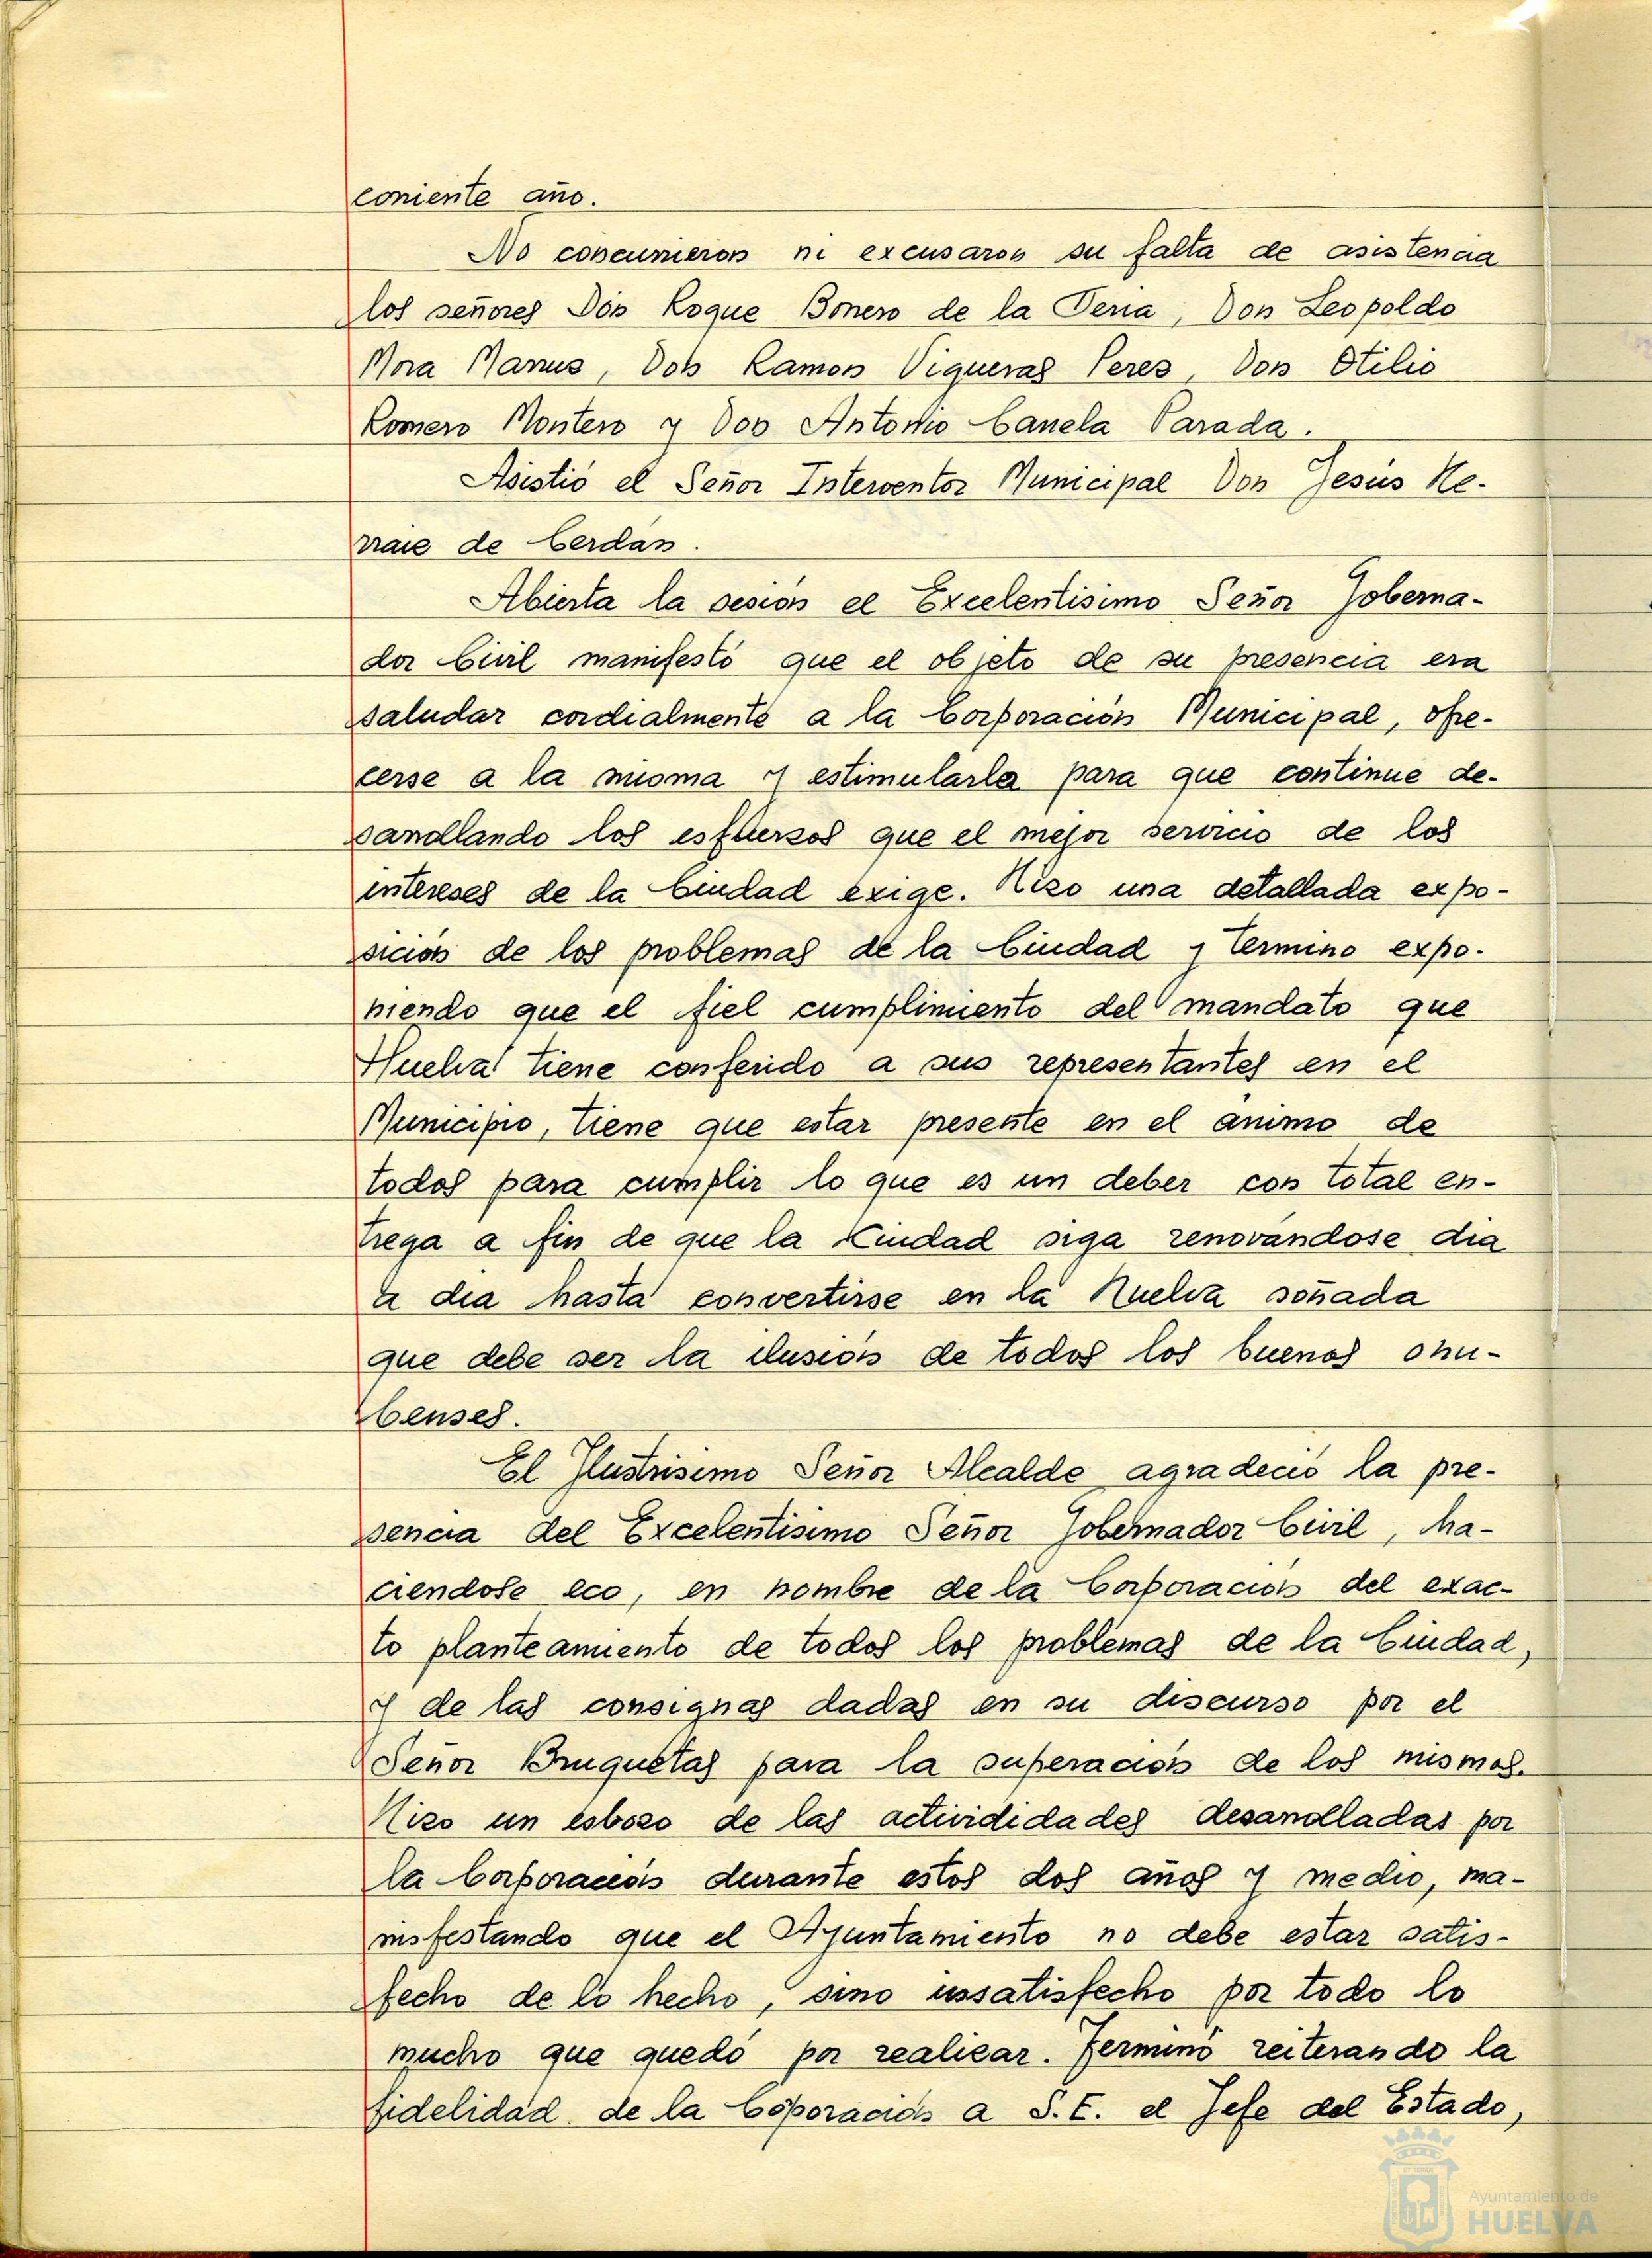 corriente año.
No concurrieron ni excusaron su falta de asistencia
los señores Don Roque Borrero de la Feria, Don Leopoldo
Mora Marrus, Don Ramon Viqueras Peres, Don Otilio
Romero Montero y Don Antonio Canela Parada.
Asistió el Señor Interventor Municipal Don Jesús He-
rraie de Cerdán.
Abierta la sesión el Excelentisimo Señor Goberna-
dor Civil manifestó que el objeto de su presencia era
saludar cordialmente a la Corporación Municipal, ofre-
cerse a la misma y estimularla para que continue de-
sarrollando los esfuersos que el mejor servicio de los
intereses de la Ciudad exige. Hizo una detallada expo-
sición de los problemas de la Ciudad y termino expo-
niendo que el fiel cumplimiento del mandato que
Huelva tiene conferido a sus representantes en el
Municipio, tiene que estar presente en el ánimo de
todos para cumplir lo que es un deber con total en-
trega a fin de que la Ciudad siga renovándose dia
a dia hasta convertirse en la Huelva soñada
que debe ser la ilusión de todos los buenos onu-
benses.
El Ilustrisimo Señor Alcalde agradeció la pre-
sencia del Excelentisimo Señor Gobernador Civil, ha-
ciendose eco, en nombre de la Corporación del exac-
to planteamiento de todos los problemas de la Ciudad,
y de las consignas dadas en su discurso por el
Señor Bruquetas para la superación de los mismos.
Hizo un esbozo de las activididades desarrolladas por
la Corporación durante estos dos años y medio, ma-
nisfestando que el Ayuntamiento no debe estar satis-
fecho de lo hecho, sino insatisfecho por todo lo
mucho que quedó por realizar. Terminó reiterando la
fidelidad de la Coporación a S.E. el Jefe del Estado,
Ayuntamiento de
HUELVA